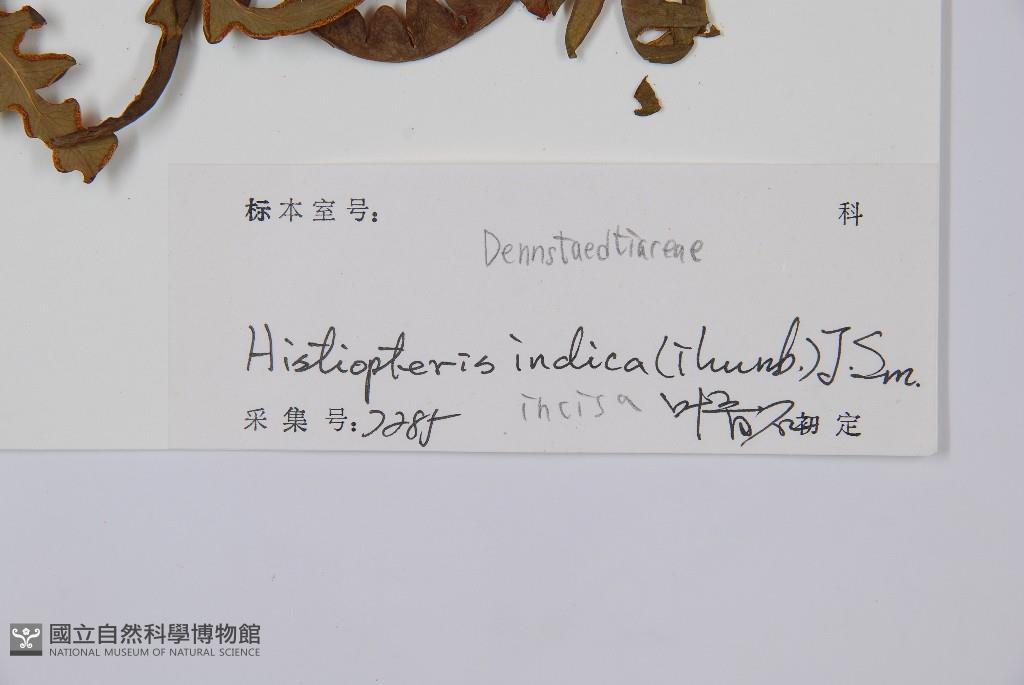 标本室号: 科
Dennstaedtiareae
Histiopteris indica (Thunb.) J. Sm.
incisa
采集号: 7285 叶 初定
國立自然科學博物館
NATIONAL MUSEUM OF NATURAL SCIENCE